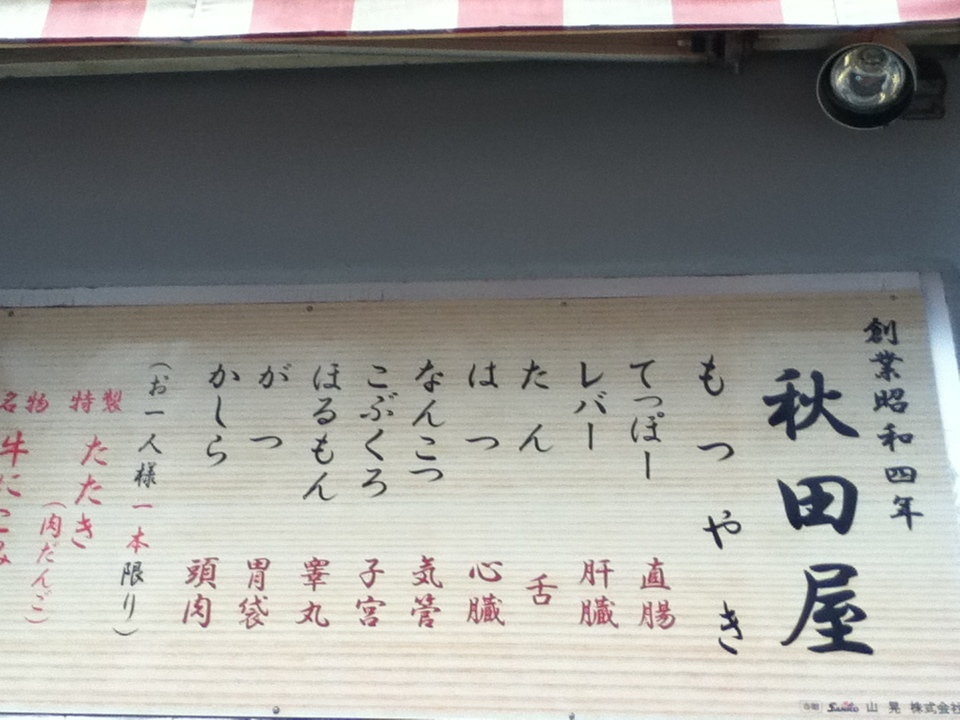 創業昭和四年
秋田屋
もつやき
てっぽー 直腸
レバー 肝臓
たん 舌
はつ 心臓
なんこつ 気管
こぶくろ 子宮
ほるもん 睾丸
がつ 胃袋
かしら 頭肉
(お一人様一本限り)
特製
たたき
(肉だんご)
名物
牛にこみ
山晃 株式会社